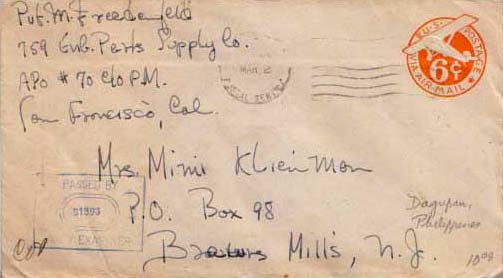 Pvt. M. Freedenfeld
759 Eng. Parts Supply Co.
APO # 70 c/o P.M.
San Francisco, Cal.
U.S. POSTAGE
6¢
VIA AIR-MAIL
MAR 2
POSTAL SERVICE
Mrs. Mimi Klienman
P.O. Box 98
Mills, N.J.
PASSED BY
EXAMINER
Dagupan,
Philippines